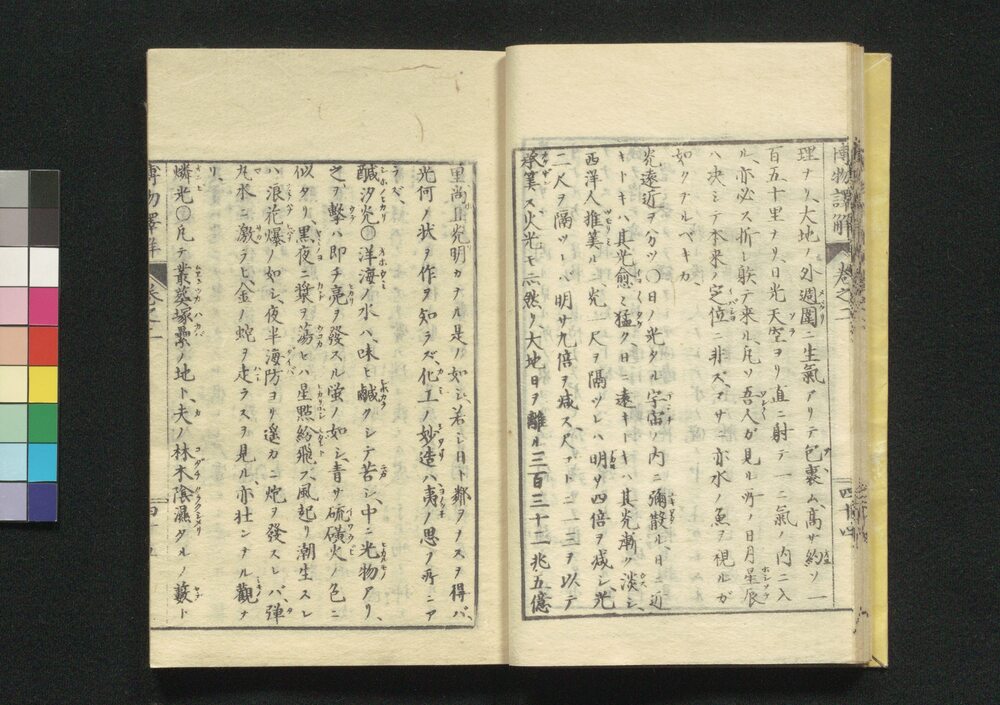 博物譯解 卷之二 四十四
理ナリ、大地ノ外週圍ニ生氣アリテ包裹ム、高サ約ソ一
百五十里ナリ、日光天空ヨリ直ニ射テ一二氣ノ内ニ入
ル、亦必ス折レ躱テ来ル、凡ソ吾人ガ見ル所ノ日月星辰
ハ決シテ本来ノ定位ニ非ズ、サ亦水ノ魚ヲ視ルガ
如クナルベキカ、
光遠近ヲ分ツ〇日ノ光タル宇宙ノ内ニ彌散ル、日ニ近
キトキハ其光愈ミ猛ク、日ニ遠キトキハ其光漸ク淡シ、
西洋人推筭ル、光一尺ヲ隔ツレハ明サ四倍ヲ减シ光
二尺ヲ隔ツレバ明サ九倍ヲ减ス、尺ゴトニ一三ヲ以テ
承筭ス火光モ亦然リ、大地日ヲ離ル三百三十二兆五億
里尚且光明カナル是ノ如シ、若シ日ト鄰ヲナスヲ得バ、
光何ノ状ヲ作ヲ知ラズ、化工ノ妙造ハ夷ノ思フ所ニア
ラズ、
鹹汐光〇洋海ノ水ハ、味ヒ鹹クシテ苦シ、中ニ光物アリ、
之ヲ擊ハ即チ亮ヲ發スル螢ノ如シ、青サ硫磺火ノ色ニ
似タリ、黒夜ニ槳ヲ蕩ヒハ星㸃紛飛ス、風起リ潮生スレ
ハ浪花爆ノ如シ、夜半海防ヨリ遙カニ炮ヲ發スレバ、彈
丸水ニ激ラヒ、金ノ蛇ヲ走ラスヲ見ル、亦壮ンナル觀ナ
リ、
燐光〇凡テ叢墓塚纍ノ地ト、夫ノ林木陰濕タルノ藪ト
博物譯解 卷之二 四十五